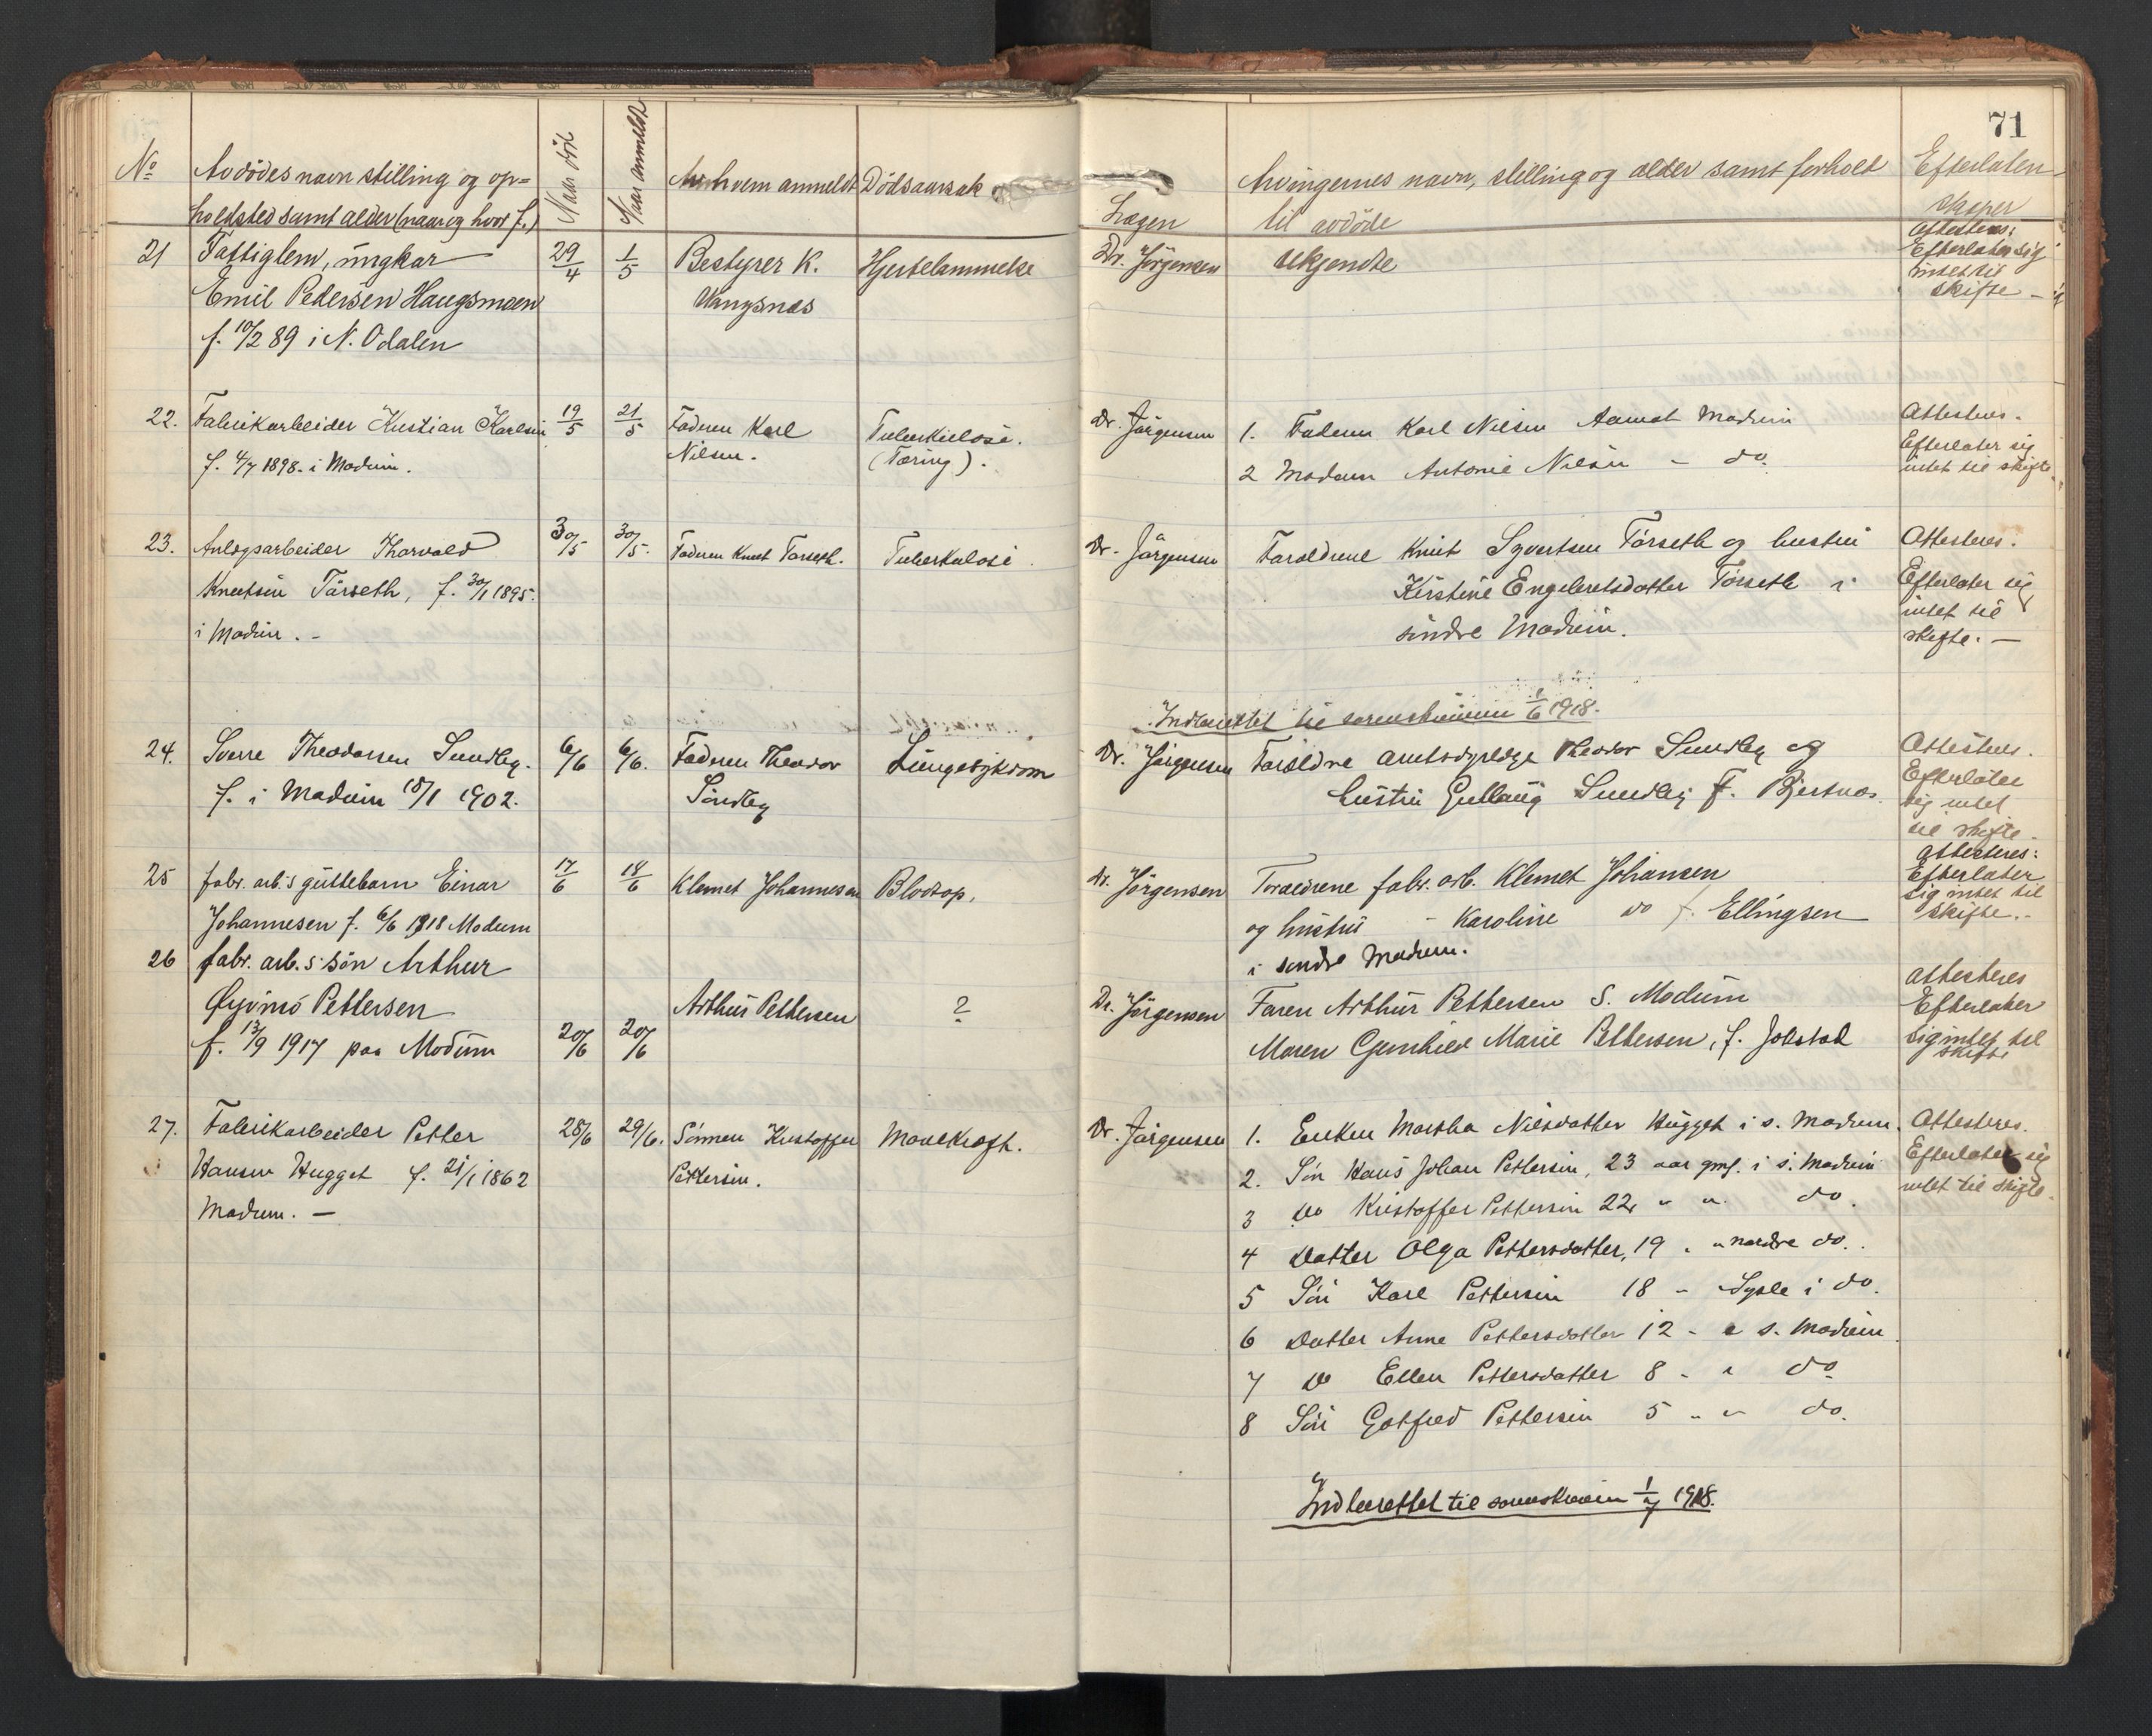 71
No Avdödes navn stilling og op=
holdsted samt alder (naar og hvor f.)
Naar död
Naar anmeldt
Av hvem anmeldt
Dödsaarsak
Lægen
Arvingernes navn, stilling og alder samt forhold
til avdöde
Efterladen-
skaper
21 Fattiglem, ungkar
Emil Pedersen Haugsmoen
f. 10/2 89 i N. Odalen
29/4
1/5
Bestyrer K.
Vangsnæs
Hjertelammelse
Dr. Jörgensen
Ukjendte
Attesteres:
Efterlater sig
intet til
skifte -
22. Fabrikarbeider Kristian Karlsen
f. 4/7 1898. i Modum.
19/5
21/5
Faderen Karl
Nilsen.
Tuberkulose.
(Tæring).
Dr. Jörgensen
1. Faderen Karl Nilsen Aamot Modum
2 Modern Antonie Nilsen - do
Attesteres.
Efterlater sig
intet til skifte
23. Anlegsarbeider Thorvald
Knutsen Tórseth, f. 30/1 1895.
i Modum. -
30/5
30/5.
Faderen Knut Torseth.
Tuberkulose
Dr. Jörgensen
Foroldrene Knut Syvertsen Tórseth og hustru
Kirstine Engebretsdatter Tórseth i
söndre Modum.
Attesteres.
Efterlater sig
intet til
skifte. -
Indberettet til sorenskriveren 1/6 1918.
24. Sverre Theodorsen Sundby.
f. i Modum 18/1 1902.
6/6
6/6.
Faderen Theodor
Sundby
Lungesykdom
Dr. Jörgensen
Foroldre amtsdyrlæge Theodor Sundby og
hustru Gullaug Sundby F. Bjertnæs.
Attesteres.
Efterlater
sig intet
til skifte.
25 fabr. arb.s guttebarn Einar
Johannesen f. 6/6 1918 Modum
17/6
18/6
Klemet Johannesen
Blodtap.
Dr. Jörgensen
Foraeldrene fabr. arb. Klemet Johansen
og hustru - Karoline do f. Ellingsen
i söndre Modum.
Attesteres:
Efterlater
sig intet til
skifte.-
26 fabr. arb.s sön Arthur
Øyvind Pettersen
f. 13/9 1917 paa Modum
20/6
20/6
Arthur Pettersen
?
Dr. Jörgensen
Faren Arthur Pettersen S. Modum
Moren Gunhild Marie Pettersen, f. Jolstad
attesteres
Efterlater
sig intet til
skifte
27. Fabrikarbeider Petter
Hansen Hugget f. 21/1 1862
Modum. -
28/6
29/6.
Sönnen Kristoffer
Pettersen.
Mavekræft.
Dr. Jörgensen
1. Enken Martha Nilsdatter Hugget i s. Modum.
2. Sön Hans Johan Pettersen, 23 aar gml. i s. Modum
3 do Kristoffer Pettersen 22 " " do.
4 Datter Olga Pettersdatter, 19 " " nordre do.
5 Sön Karl Pettersen 18 - Sysle i do.
6 Datter Anne Pettersdatter 12 - " s. Modum.
7 do Ellen Pettersdatter 8 - " do
8 Sön Gotfred Pettersen 5 " " do.
Attesteres.
Efterlater sig
intet til skifte.
Indberettet til sorenskriveren 1/7 1918.